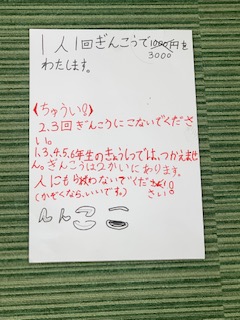 1人1回ぎんこうで1000円を
3000
わたします。
〈ちゅうい!〉
2.3回ぎんこうにこないでくださ
い。
1.3.4.5.6年生のきょうしつでは、つかえませ
ん。ぎんこうは2かいにあります。
人にもらわないでください!
(かぞくなら、いいです。)